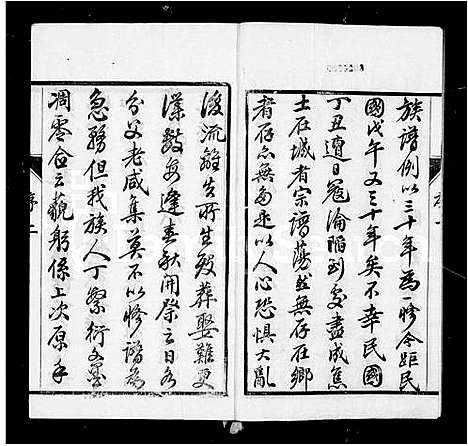 族譜例以三十年為一修今距民
國戊午又三十年矣不幸民國
丁丑遭日寇淪陷到處盡成焦
土在城者宗譜蕩然無存在鄉
者存亦無多迨以人心恐惧大亂
序一
後流離失所生殁葬娶難更
僕數每逢春秋開祭之日各
分父老咸集莫不以修譜為
急務但我族人丁繁衍文墨
凋零合云藐躬係上次原手
序二